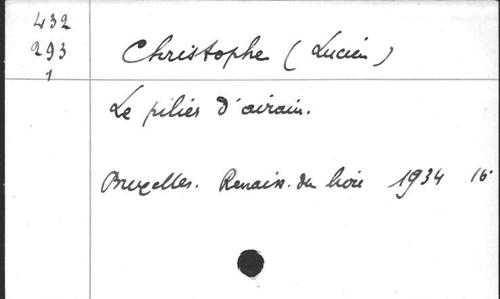 432
293
1
Christophe (Lucien)
Le pilier d'airain.
Bruxelles. Renaiss. du livre 1934 16°